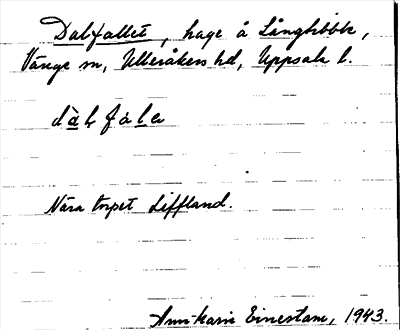 Dalfallet, hage å Långtibble,
Vänge sn, Ulleråkers hd, Uppsala l.
dàḷfàle
Nära torpet Liffland.
Ann-Karin Einestam, 1943.